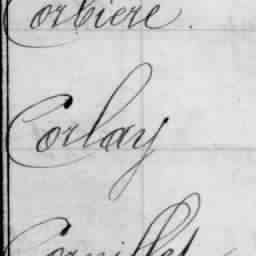 Corbiere.
Corlay
Cornillet